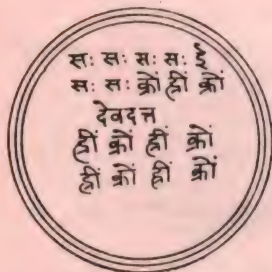 सः सः सः सः ई
सः सः क्रों ह्रीं क्रों
देवदत्त
ह्रीं क्रों ह्रीं क्रों
ह्रीं क्रों ह्रीं क्रों